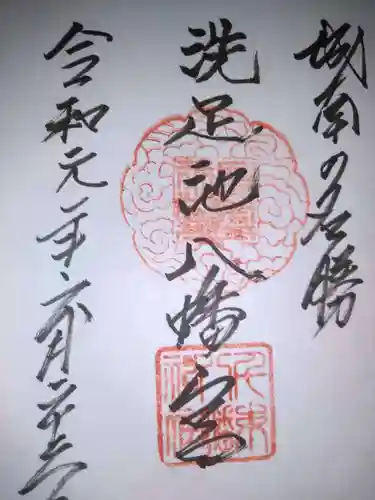 城南の名勝
洗足池八幡宮
令和元年六月二十六